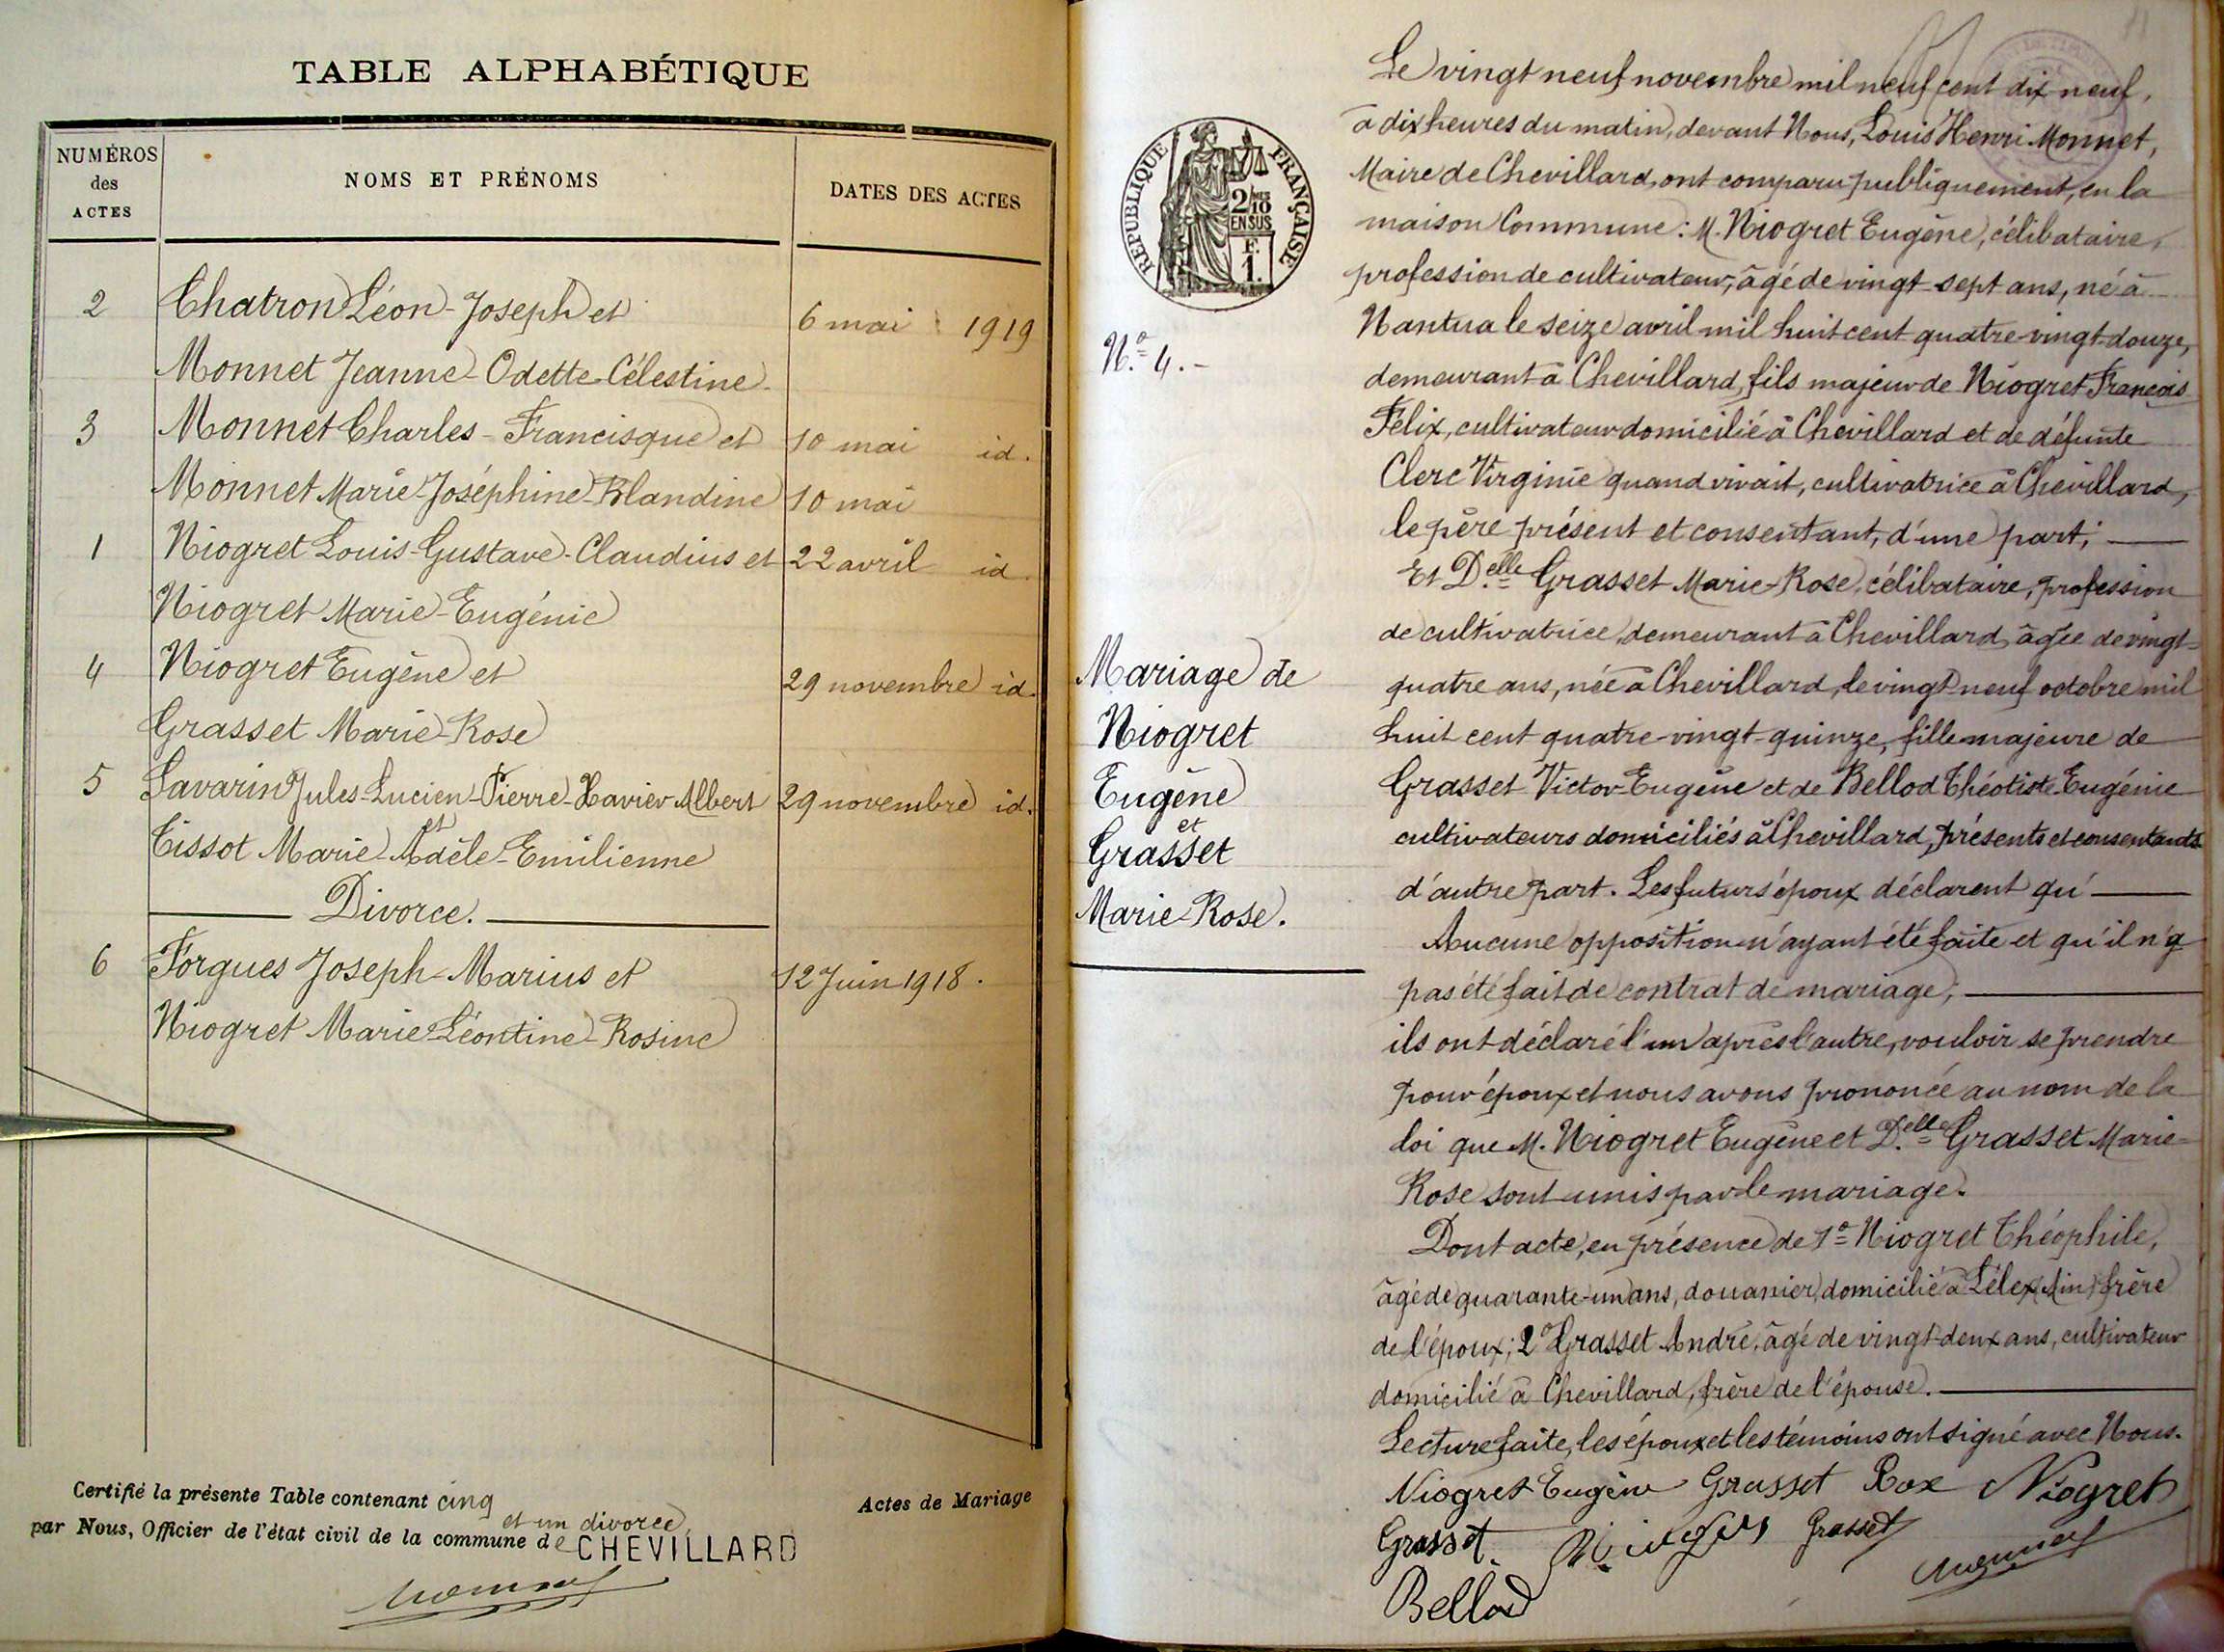 TABLE ALPHABÉTIQUE
NUMÉROS des ACTES
NOMS ET PRÉNOMS
DATES DES ACTES
2 Chatron Léon-Joseph et 6 mai 1919
Monnet Jeanne-Odette-Célestine
3 Monnet Charles-Francisque et 10 mai id.
Monnet Marie-Joséphine-Blandine 10 mai
1 Niogret Louis-Gustave-Claudius et 22 avril id
Niogret Marie-Eugénie
4 Niogret Eugène et 29 novembre id.
Grasset Marie-Rose
5 Savarin Jules-Lucien-Pierre-Xavier-Albert 29 novembre id.
et
Tissot Marie-Adèle-Emilienne
Divorce.
6 Forgues Joseph-Marius et 12 Juin 1918.
Niogret Marie-Léontine-Rosine
Certifié la présente Table contenant cinq Actes de Mariage
et un divorce,
par Nous, Officier de l'état civil de la commune de CHEVILLARD
Monnet
RÉPUBLIQUE FRANÇAISE
2/10
EN SUS
F.
1.
N.º 4.-
Mariage de
Niogret
Eugène
et
Grasset
Marie-Rose.
Le vingt neuf novembre mil neuf cent dix neuf,
à dix heures du matin, devant Nous, Louis Henri Monnet,
Maire de Chevillard, ont comparu publiquement, en la
maison Commune : M. Niogret Eugène, célibataire,
profession de cultivateur, âgé de vingt-sept ans, né à
Nantua le seize avril mil huit cent quatre-vingt-douze,
demeurant à Chevillard, fils majeur de Niogret François
Félix, cultivateur domicilié à Chevillard et de défunte
Clerc Virginie quand vivait, cultivatrice à Chevillard,
le père présent et consentant, d'une part ;
Et D.elle Grasset Marie-Rose, célibataire, profession
de cultivatrice, demeurant à Chevillard, âgée de vingt-
quatre ans, née à Chevillard, le vingt neuf octobre mil
huit cent quatre-vingt-quinze, fille majeure de
Grasset Victor-Eugène et de Bellod Théotiste-Eugénie
cultivateurs domiciliés à Chevillard, présents et consentants
d'autre part. Les futurs époux déclarent qu'
Aucune opposition n'ayant été faite et qu'il n'y
pas été fait de contrat de mariage,
ils ont déclaré l'un après l'autre, vouloir se prendre
pour époux et nous avons prononcé au nom de la
loi que M. Niogret Eugène et D.elle Grasset Marie-
Rose sont unis par le mariage.
Dont acte, en présence de 1º Niogret Théophile,
âgé de quarante-un ans, douanier, domicilié à Lélex (Ain) frère
de l'époux ; 2º Grasset André, âgé de vingt-deux ans, cultivateur
domicilié à Chevillard, frère de l'épouse.
Lecture faite, les époux et les témoins ont signé avec Nous.
Niogret Eugène Grasset Rose Niogret
Grasset Niogret Grasset Monnet
Bellod